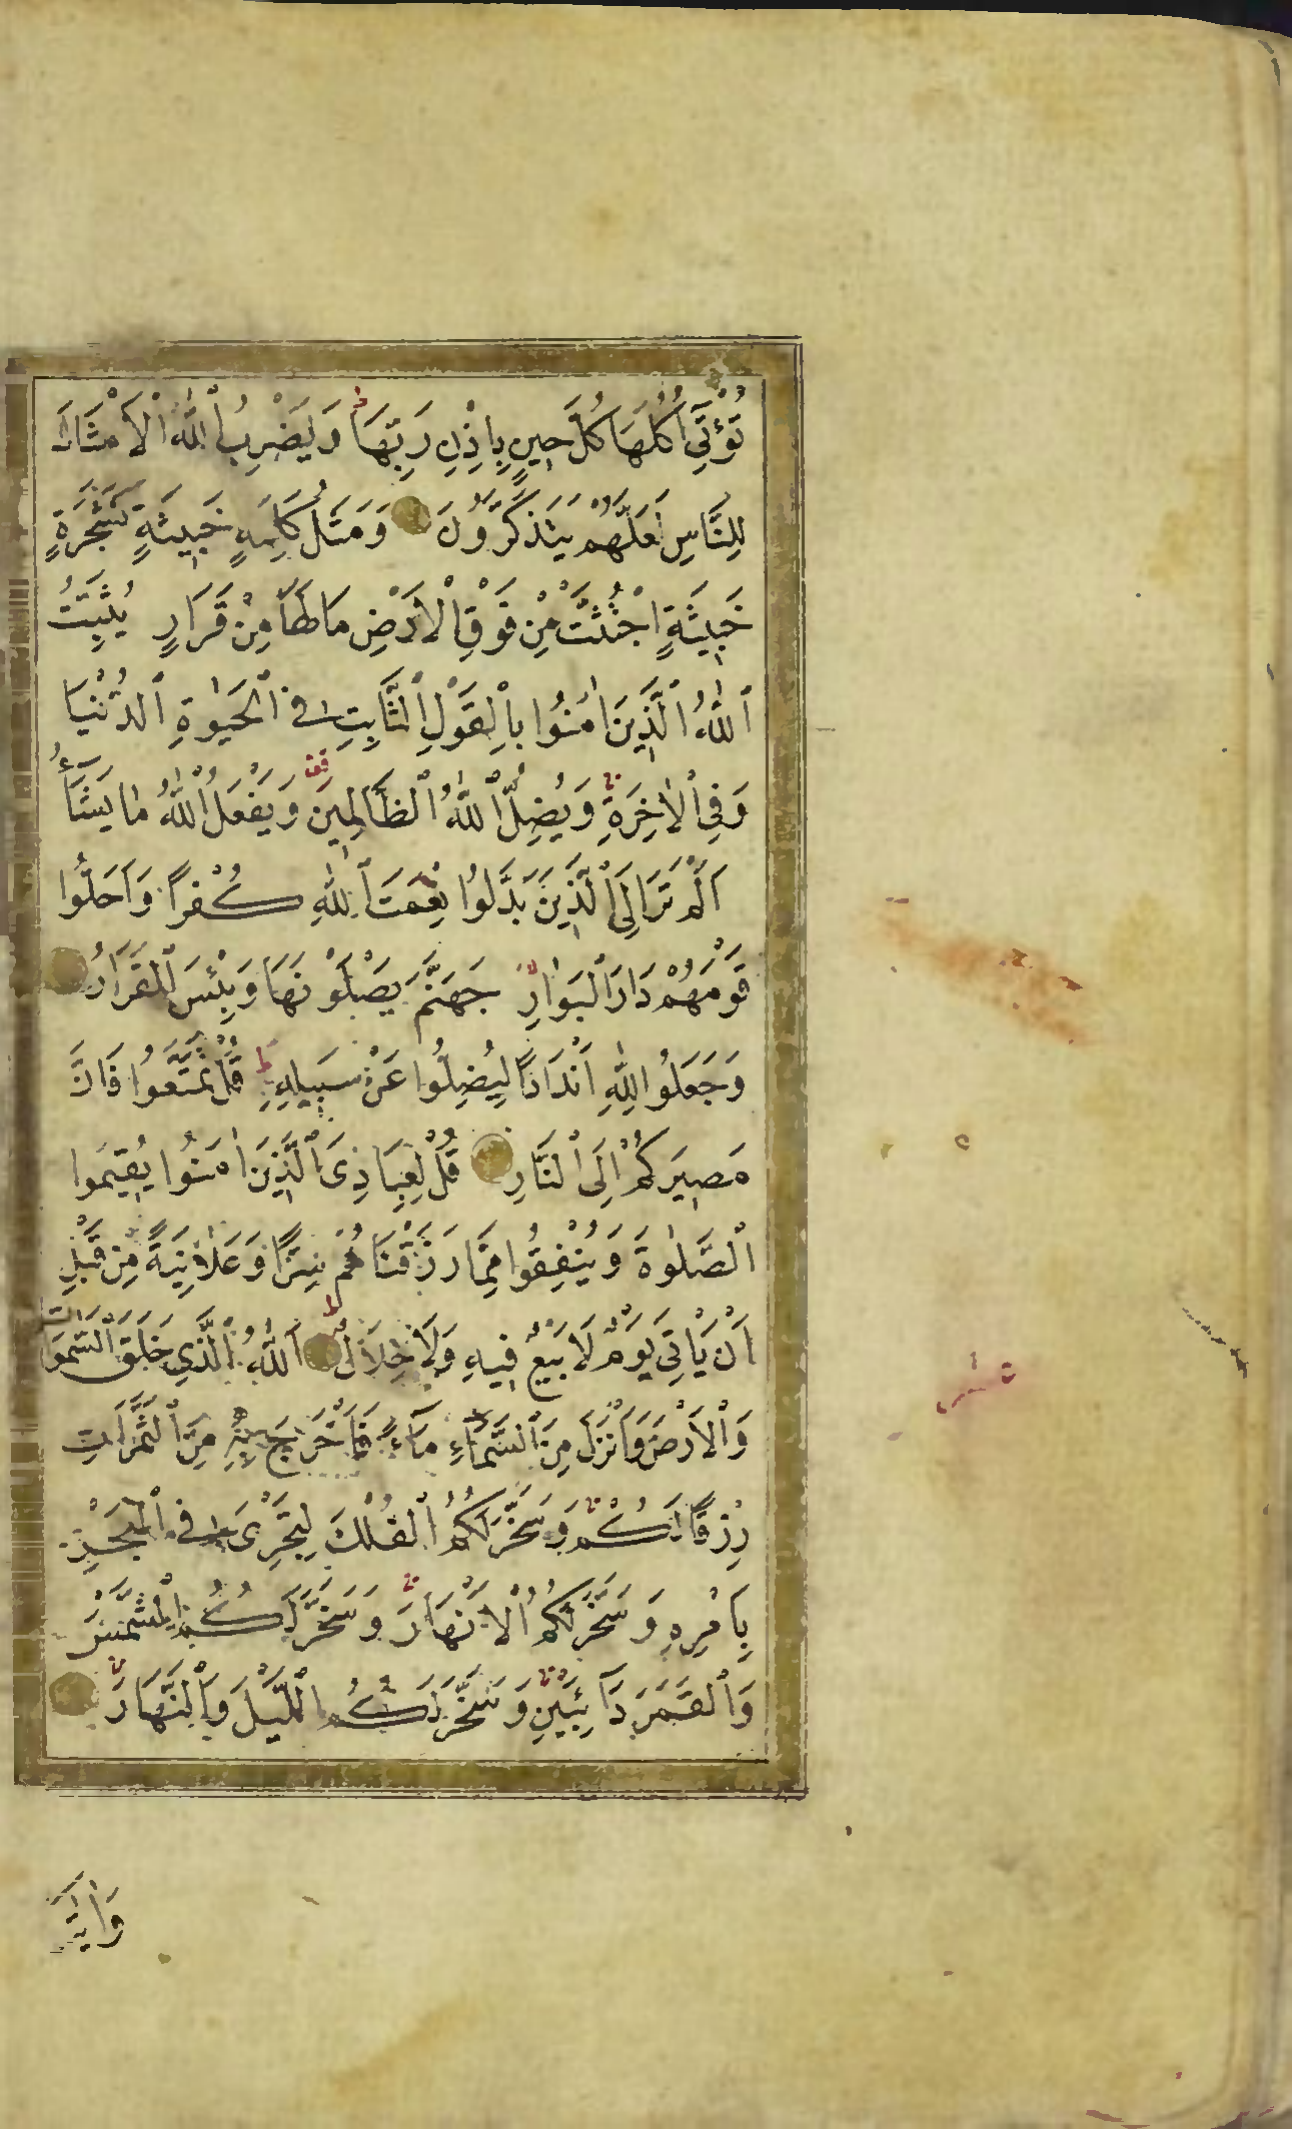 تُؤْتِي اُكُلَهَا كُلَّ حِينٍ بِاِذْنِ رَبِّهَا ط وَيَضْرِبُ ٱللّٰهُ ٱلْاَمْثَالَ
لِلنَّاسِ لَعَلَّهُمْ يَتَذَكَّرُونَ وَمَثَلُ كَلِمَةٍ خَبِيثَةٍ كَشَجَرَةٍ
خَبِيثَةٍ اجْتُثَّتْ مِنْ فَوْقِ ٱلْاَرْضِ مَا لَهَا مِنْ قَرَارٍ يُثَبِّتُ
ٱللّٰهُ ٱلَّذِينَ اٰمَنُوا بِٱلْقَوْلِ ٱلثَّابِتِ فِي ٱلْحَيٰوةِ ٱلدُّنْيَا
وَفِي ٱلْاٰخِرَةِ وَيُضِلُّ ٱللّٰهُ ٱلظَّالِمِينَ قف وَيَفْعَلُ ٱللّٰهُ مَا يَشَآءُ
اَلَمْ تَرَ اِلَى ٱلَّذِينَ بَدَّلُوا نِعْمَتَ ٱللّٰهِ كُفْرًا وَاَحَلُّوا
قَوْمَهُمْ دَارَ ٱلْبَوَارِ جَهَنَّمَ يَصْلَوْنَهَا وَبِئْسَ ٱلْقَرَارُ
وَجَعَلُوا لِلّٰهِ اَنْدَادًا لِيُضِلُّوا عَنْ سَبِيلِهِ ط قُلْ تَمَتَّعُوا فَاِنَّ
مَصِيرَكُمْ اِلَى ٱلنَّارِ قُلْ لِعِبَادِيَ ٱلَّذِينَ اٰمَنُوا يُقِيمُوا
ٱلصَّلٰوةَ وَيُنْفِقُوا مِمَّا رَزَقْنَاهُمْ سِرًّا وَعَلَانِيَةً مِنْ قَبْلِ
اَنْ يَاْتِيَ يَوْمٌ لَا بَيْعٌ فِيهِ وَلَا خِلَالٌ اَللّٰهُ ٱلَّذِي خَلَقَ ٱلسَّمٰوَاتِ
وَٱلْاَرْضَ وَاَنْزَلَ مِنَ ٱلسَّمَآءِ مَآءً فَاَخْرَجَ بِهِ مِنَ ٱلثَّمَرَاتِ
رِزْقًا لَكُمْ وَسَخَّرَ لَكُمُ ٱلْفُلْكَ لِتَجْرِيَ فِي ٱلْبَحْرِ
بِاَمْرِهِ وَسَخَّرَ لَكُمُ ٱلْاَنْهَارَ وَسَخَّرَ لَكُمُ ٱلشَّمْسَ
وَٱلْقَمَرَ دَآئِبَيْنِ وَسَخَّرَ لَكُمُ ٱللَّيْلَ وَٱلنَّهَارَ
وَاٰتٰي